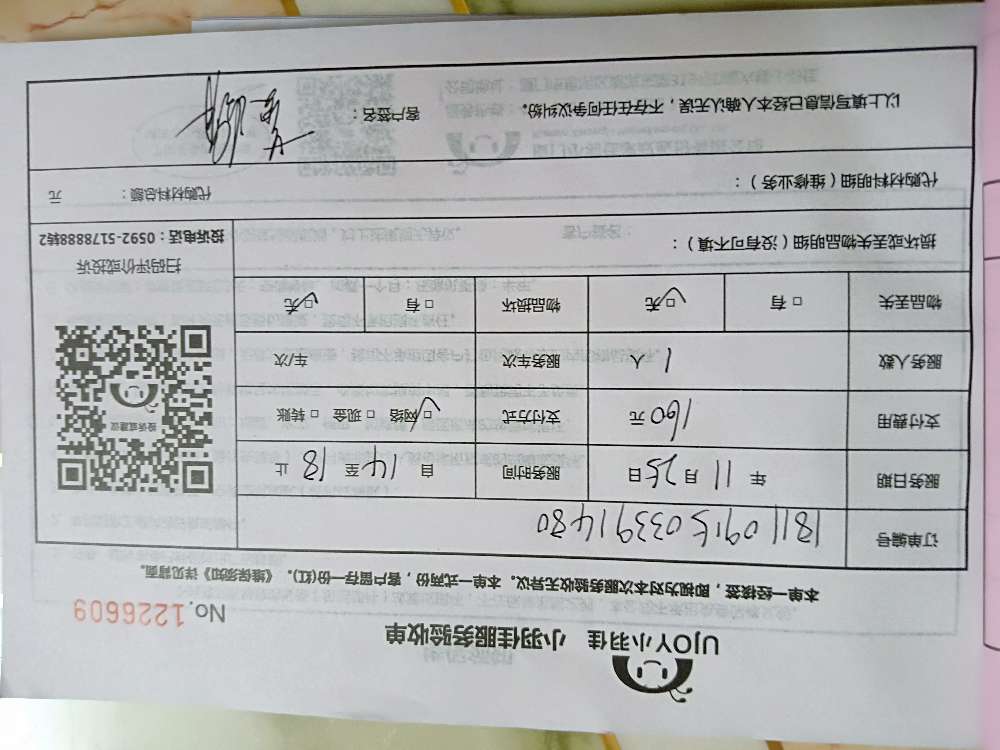 UJOY小羽佳 小羽佳服务验收单
No.1226609
本单一经接签,即视为对本次服务验收无异议。本单一式两份,客户留存一份(红)。《维保须知》详见背面。
订单编号 1811091503391480
服务日期 年 11 月 25 日 服务时间 自 14 至 18 止
支付费用 160 元 支付方式 □网络 □现金 □转账
服务人数 1 人 服务车次 车/次
物品丢失 □有 □无 物品损坏 □有 □无
投诉或建议
扫码评价或投诉
投诉电话:0592-5178888转2
损坏或丢失物品明细(没有可不填):
代购材料明细(维修业务): 代购材料总额: 元
以上填写信息已经本人确认无误,不存在任何争议纠纷。 客户签名: